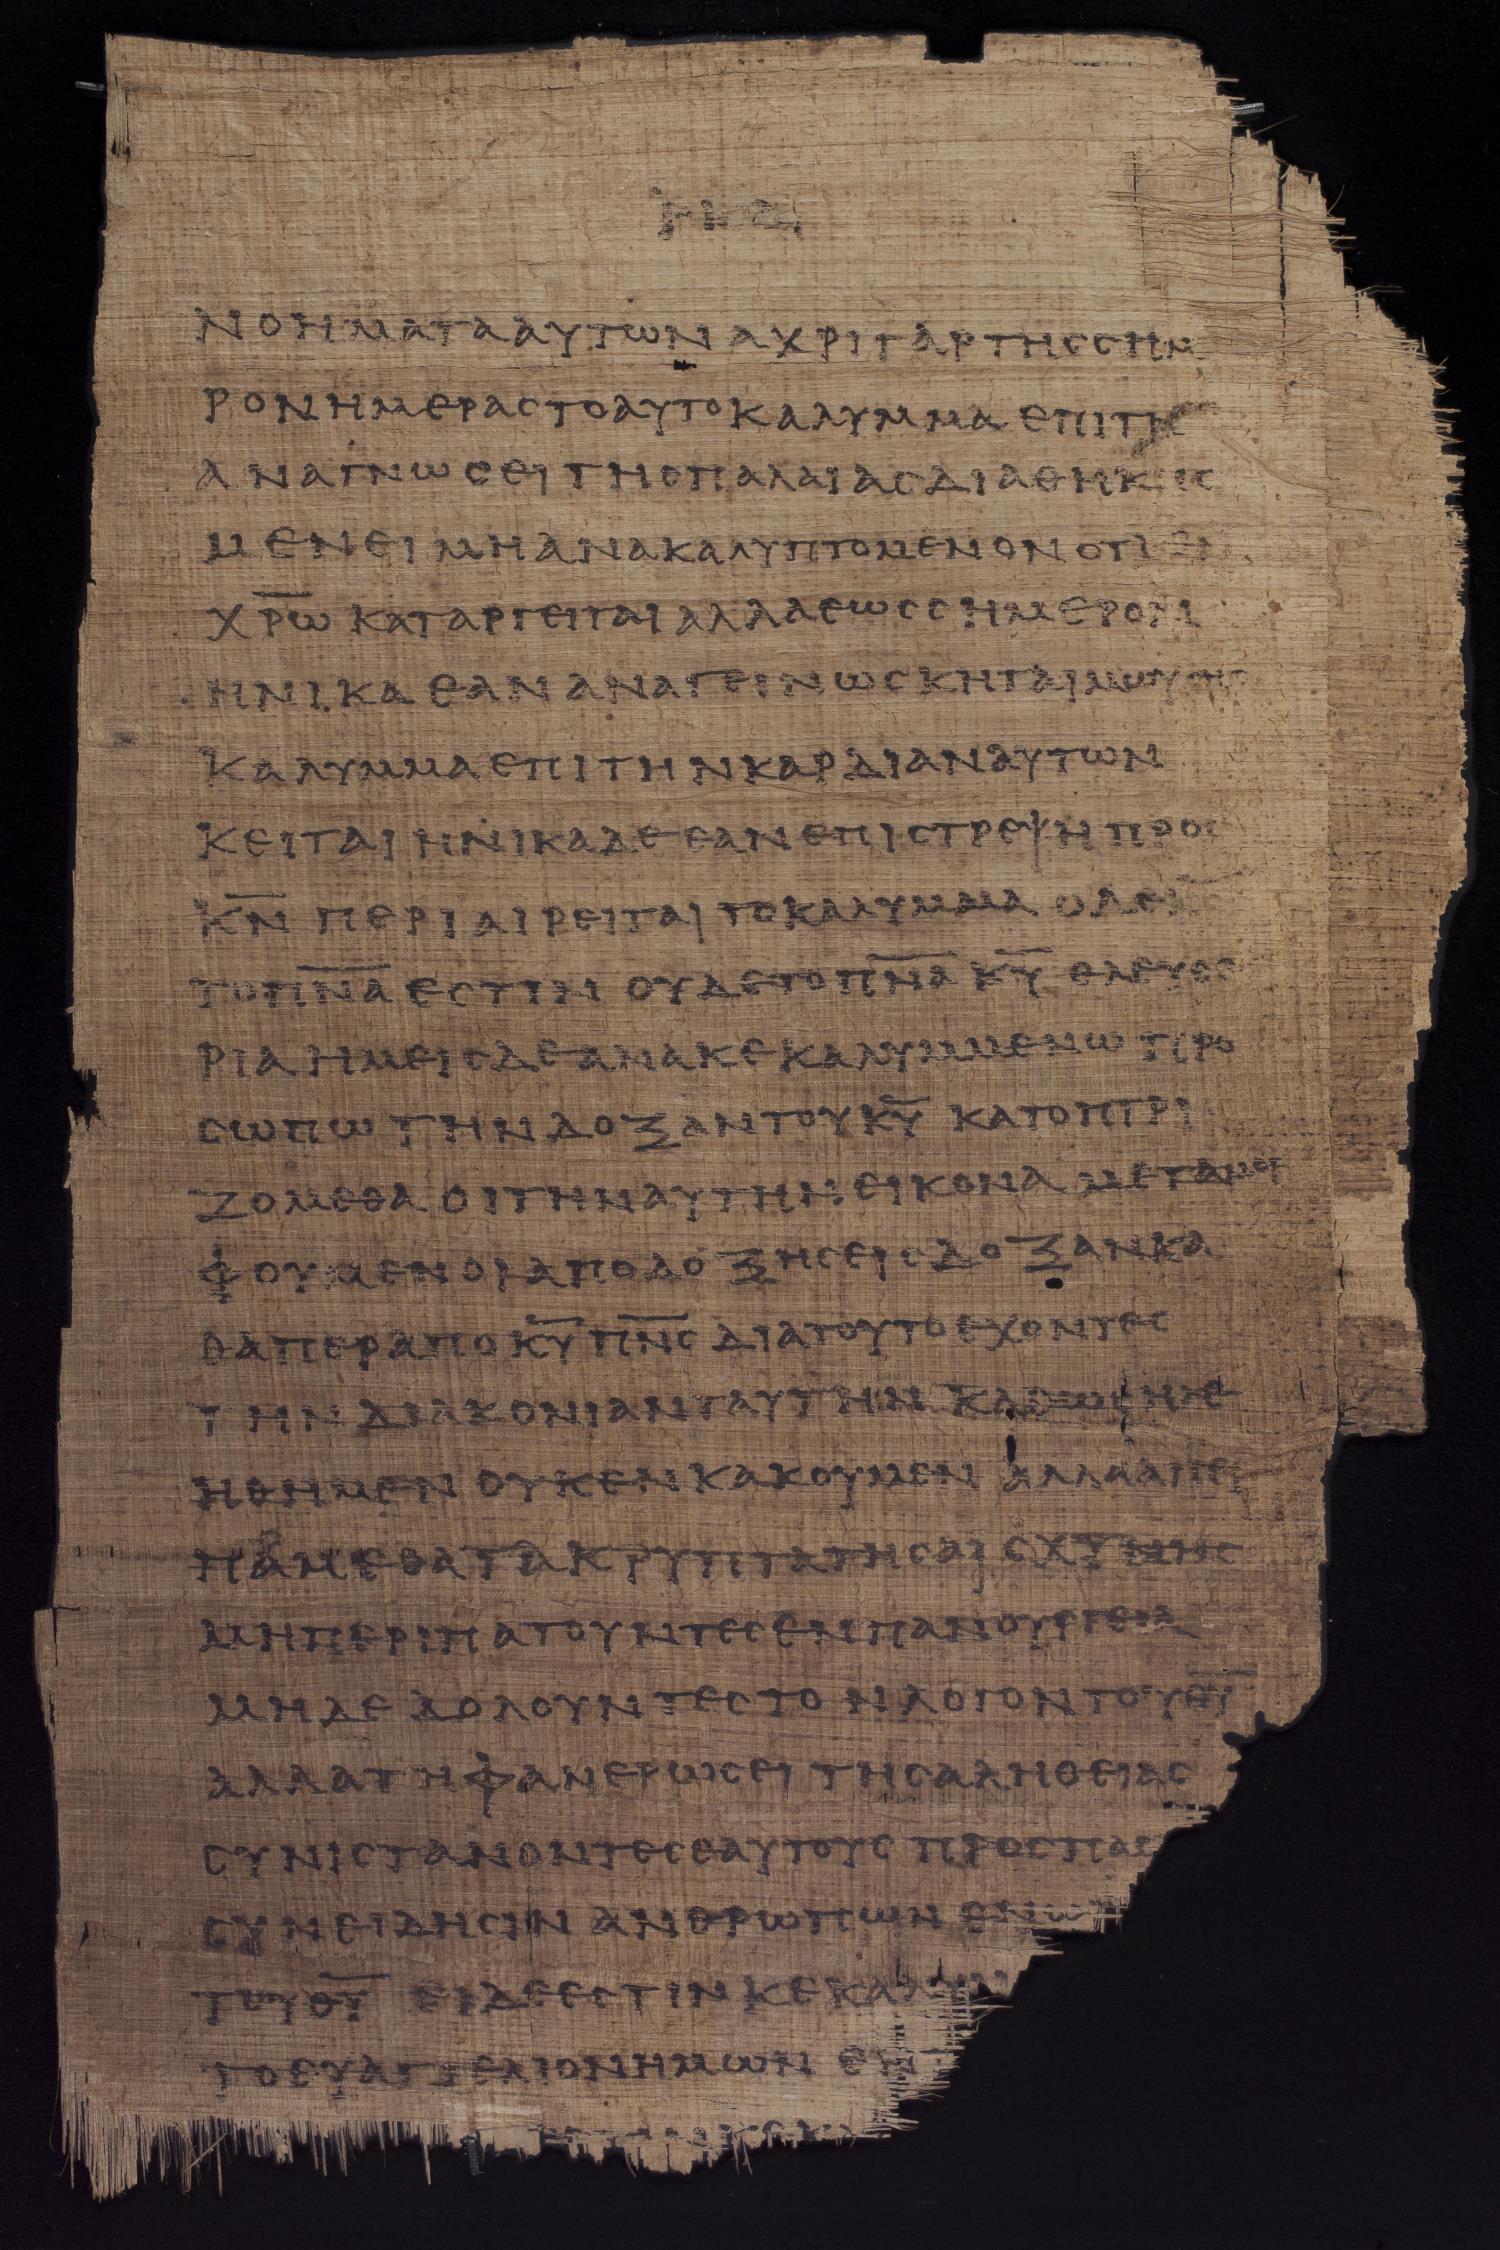 ΝΟΗΜΑΤΑΑΥΤΩΝΑΧΡΙΓΑΡΤΗCCΗΜ
ΡΟΝΗΜΕΡΑCΤΟΑΥΤΟΚΑΛΥΜΜΑΕΠΙΤΗ
ΑΝΑΓΝΩCΕΙΤΗCΠΑΛΑΙΑCΔΙΑΘΗΚΗC
ΜΕΝΕΙΜΗΑΝΑΚΑΛΥΠΤΟΜΕΝΟΝΟΤΙΕΝ
Χ̅Ρ̅Ω̅ ΚΑΤΑΡΓΕΙΤΑΙΑΛΛΑΕΩCCΗΜΕΡΟΝ
ΗΝΙΚΑΕΑΝΑΝΑΓΕΙΝΩCΚΗΤΑΙΜΩΥCΗC
ΚΑΛΥΜΜΑΕΠΙΤΗΝΚΑΡΔΙΑΝΑΥΤΩΝ
ΚΕΙΤΑΙΗΝΙΚΑΔΕΕΑΝΕΠΙCΤΡΕΨΗΠΡΟC
Κ̅Ν̅ ΠΕΡΙΑΙΡΕΙΤΑΙΤΟΚΑΛΥΜΜΑ ΟΔΕΚ̅C̅
ΤΟΠ̅Ν̅Α̅ ΕCΤΙΝ ΟΥΔΕΤΟΠ̅Ν̅Α̅ Κ̅Υ̅ ΕΛΕΥΘΕ
ΡΙΑΗΜΕΙCΔΕΑΝΑΚΕΚΑΛΥΜΜΕΝΩ ΠΡΟ
CΩΠΩΤΗΝΔΟΞΑΝΤΟΥΚ̅Υ̅ ΚΑΤΟΠΤΡΙ
ΖΟΜΕΘΑ ΟΙΤΗΝΑΥΤΗΝΕΙΚΟΝΑ ΜΕΤΑΜΟΡ
ΦΟΥΜΕΝΟΙΑΠΟΔΟΞΗCΕΙCΔΟΞΑΝΚΑ
ΘΑΠΕΡΑΠΟΚ̅Υ̅ Π̅Ν̅C̅ ΔΙΑΤΟΥΤΟΕΧΟΝΤΕC
ΤΗΝΔΙΑΚΟΝΙΑΝΤΑΥΤΗΝ ΚΑΘΩC ΗΛΕ
ΗΘΗΜΕΝ ΟΥΚΕΝΚΑΚΟΥΜΕΝ ΑΛΛΑΑΠΕΙ
ΠΑΜΕΘΑΤΑΚΡΥΠΤΑΤΗCΑΙCΧΥΝΗC
ΜΗΠΕΡΙΠΑΤΟΥΝΤΕCΕΝΠΑΝΟΥΡΓΕΙΑ
ΜΗΔΕΔΟΛΟΥΝΤΕCΤΟΝΛΟΓΟΝΤΟΥΘ̅Υ̅
ΑΛΛΑΤΗΦΑΝΕΡΩCΕΙΤΗCΑΛΗΘΕΙΑC
CΥΝΙCΤΑΝΟΝΤΕCΕΑΥΤΟΥC ΠΡΟCΠΑC
CΥΝΕΙΔΗCΙΝΑΝΘΡΩΠΩΝΕΝΩ
ΤΟΥΘ̅Υ̅ ΕΙΔΕΕCΤΙΝΚΕΚΑΛΥΜ
ΤΟΕΥΑΓΓΕΛΙΟΝΗΜΩΝ ΕΝΤ